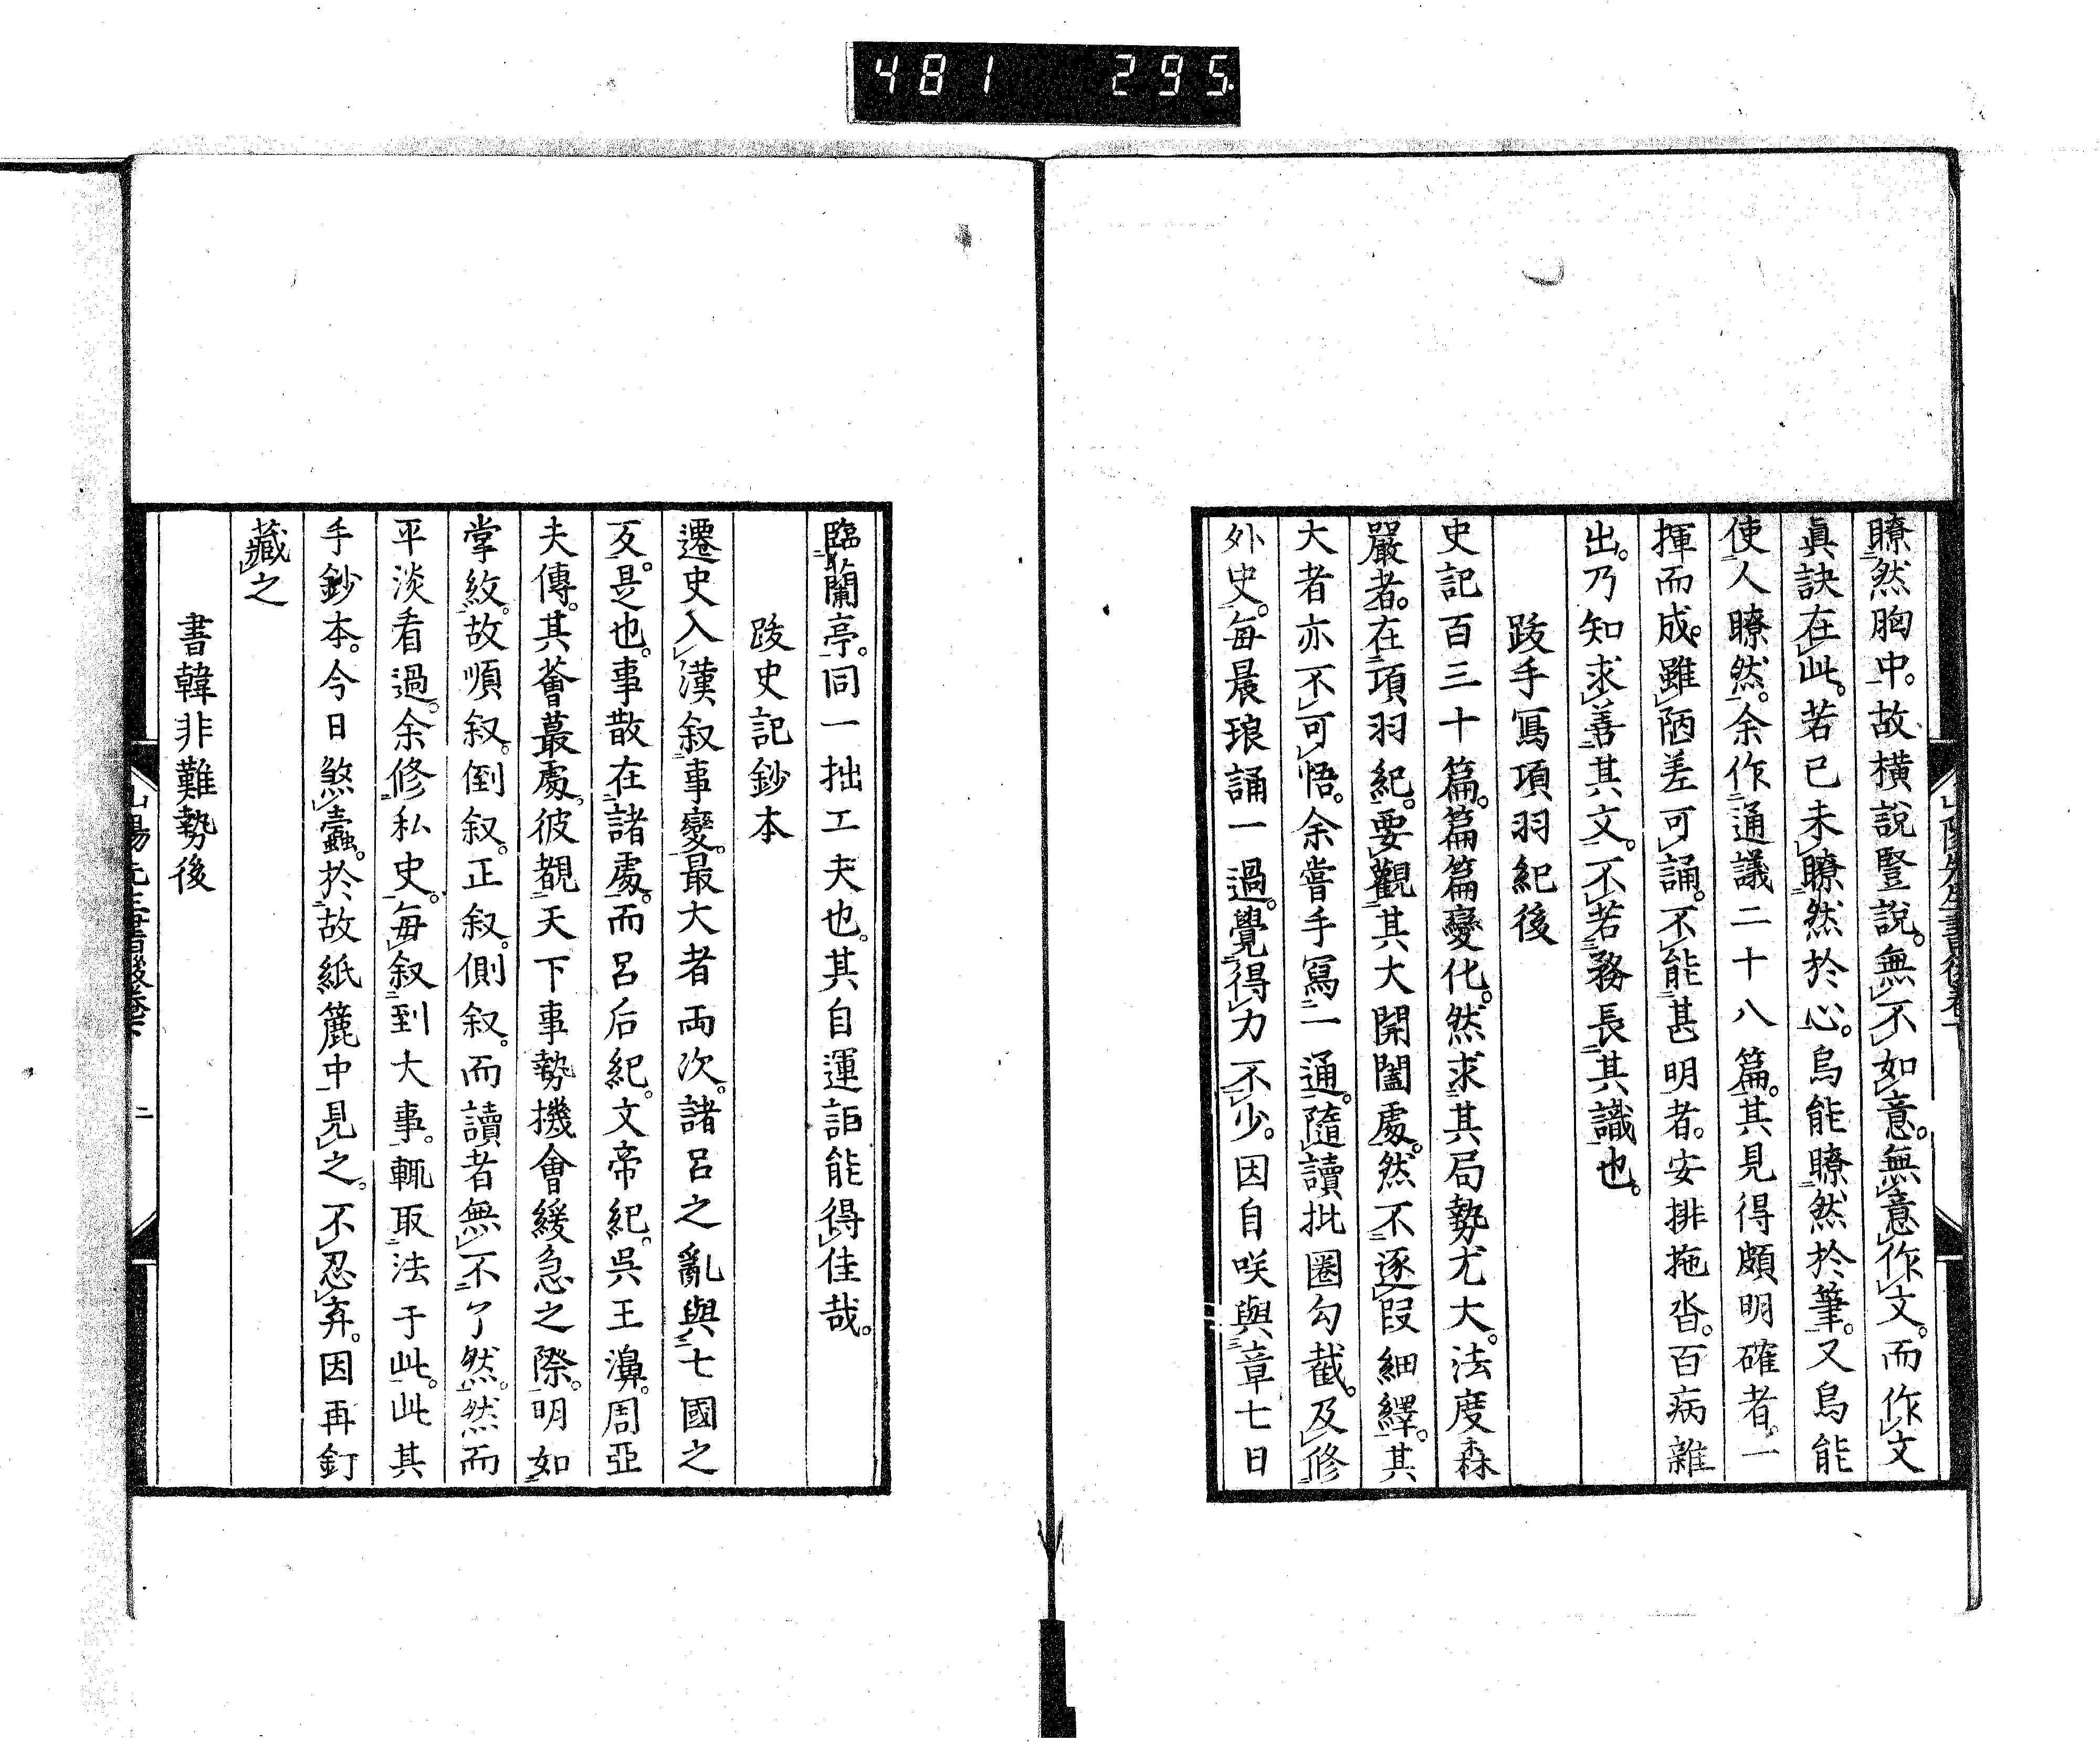 481 295
瞭然胸中。故橫說豎說。無不如意。無意作文。而作文
眞訣在此。若已未瞭然於心。烏能瞭然於筆。又烏能
使人瞭然。余作通議二十八篇。其見得頗明確者。一
揮而成。雖陋差可誦。不能甚明者。安排拖沓。百病雜
出。乃知求善其文。不若務長其識也。
跋手寫項羽紀後
史記百三十篇。篇篇變化。然求其局勢尤大。法度森
嚴者。在項羽紀。要觀其大開闔處。然不逐段細繹。其
大者亦不可悟。余嘗手寫一通。隨讀批圈勾截。及修
外史。每晨琅誦一過。覺得力不少。因自咲與章七日
臨蘭亭。同一拙工夫也。其自運詎能得佳哉。
跋史記鈔本
遷史入漢叙事變。最大者兩次。諸呂之亂與七國之
反。是也。事散在諸處。而呂后紀。文帝紀。吳王濞。周亞
夫傳。其薈蕞處。彼覩天下事勢機會緩急之際。明如
掌紋。故順叙。倒叙。正叙。側叙。而讀者無不了然。然而
平淡看過。余修私史。每叙到大事。輒取法于此。此其
手鈔本。今日煞蠹。於故紙簏中見之。不忍弃。因再釘
藏之
書韓非難勢後
二